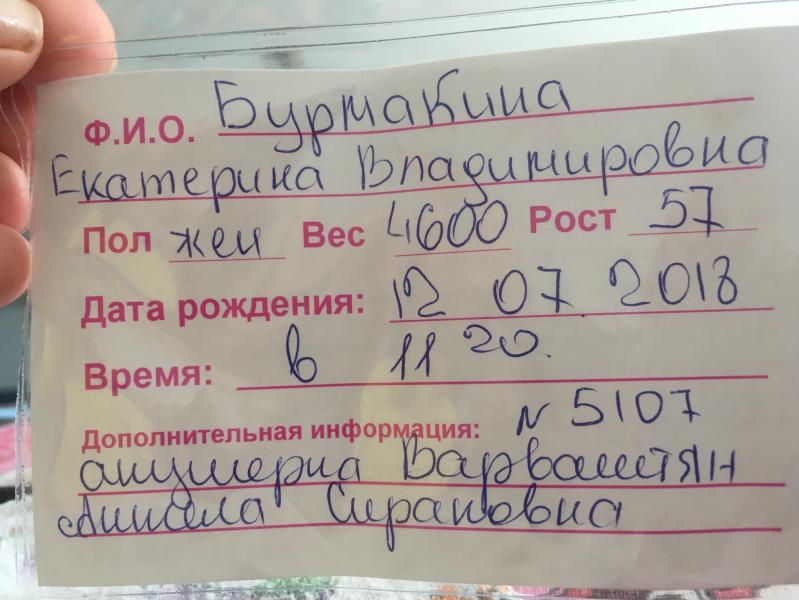 Ф.И.О. Бурмакина
Екатерина Владимировна
Пол жен Вес 4600 Рост 57
Дата рождения: 12 07 2018
Время: в 11 20
Дополнительная информация: N 5107
акушерка